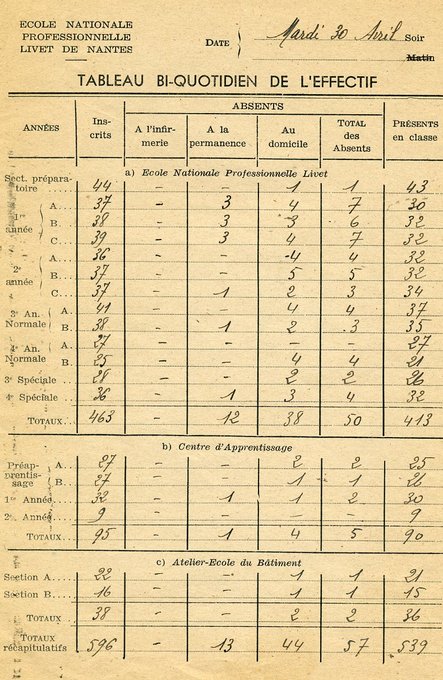 ECOLE NATIONALE
PROFESSIONNELLE
LIVET DE NANTES
DATE Mardi 30 Avril Soir
Matin
TABLEAU BI-QUOTIDIEN DE L'EFFECTIF
ANNÉES Ins-crits ABSENTS PRÉSENTS en classe
A l'infir-merie A la permanence Au domicile TOTAL des Absents
a) Ecole Nationale Professionnelle Livet
Sect. prépara-
toire 44 - - 1 1 43
1re année A. 37 - 3 4 7 30
B. 38 - 3 3 6 32
C. 39 - 3 4 7 32
2e année A. 36 - - 4 4 32
B. 37 - - 5 5 32
C. 37 - 1 2 3 34
3e An. Normale A. 41 - - 4 4 37
B. 38 - 1 2 3 35
4e An. Normale A. 27 - - - - 27
B. 25 - - 4 4 21
3e Spéciale 28 - - 2 2 26
4e Spéciale 36 - 1 3 4 32
TOTAUX 463 - 12 38 50 413
b) Centre d'Apprentissage
Préap-prentis-sage A. 27 - - 2 2 25
B. 27 - - 1 1 26
1re Année 32 - 1 1 2 30
2e Année 9 - - - - 9
TOTAUX 95 - 1 4 5 90
c) Atelier-Ecole du Bâtiment
Section A 22 - - 1 1 21
Section B 16 - - 1 1 15
TOTAUX 38 - - 2 2 36
TOTAUX
récapitulatifs 596 - 13 44 57 539